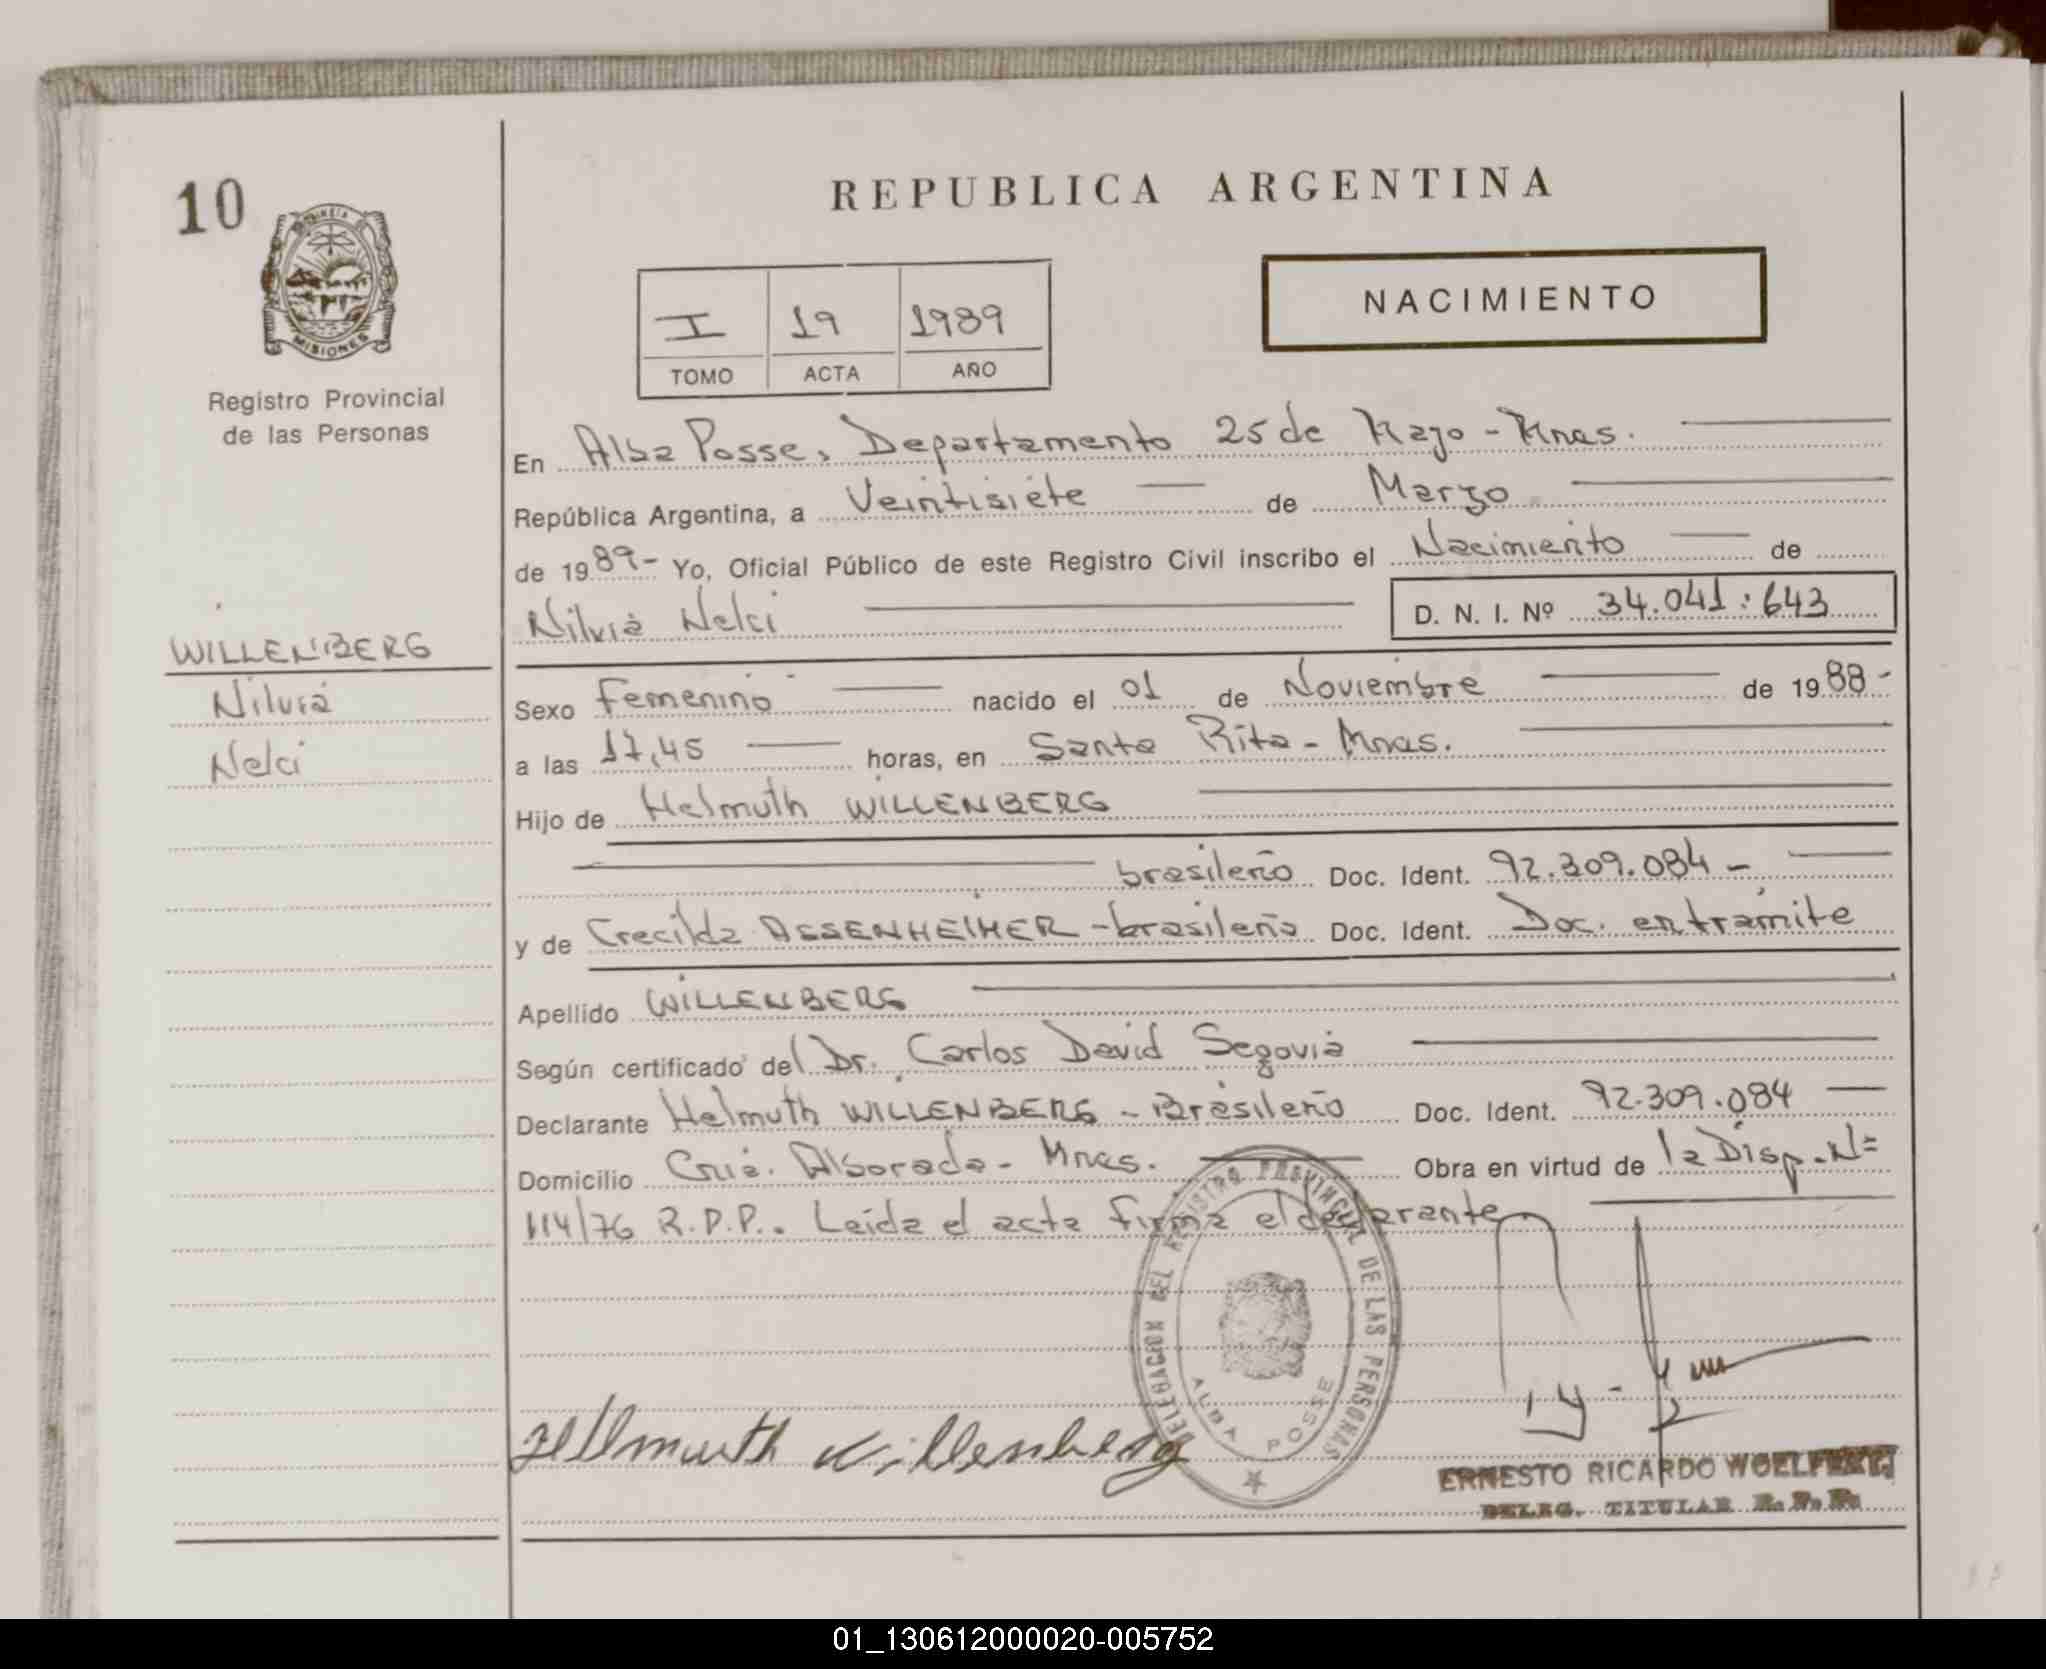 10
REPUBLICA ARGENTINA
PROVINCIA DE
MISIONES
Registro Provincial
de las Personas
NACIMIENTO
I 19 1989
TOMO ACTA AÑO
En Alba Posse, Departamento 25 de Mayo - Mnes.
República Argentina, a Veintisiete de Marzo
de 1989- Yo, Oficial Público de este Registro Civil inscribo el Nacimiento de
Nilvia Nelci D. N. I. Nº 34.041.643
WILLENBERG
Nilvia
Nelci
Sexo Femenino nacido el 01 de Noviembre de 1988-
a las 17,45 horas, en Santa Rita - Mnes.
Hijo de Helmuth WILLENBERG
brasileño Doc. Ident. 92.309.084 -
y de Crecilda ASSENHEIMER - brasileña Doc. Ident. Doc. en tramite
Apellido WILLENBERG
Según certificado del Dr. Carlos David Segovia
Declarante Helmuth WILLENBERG - Brasileño Doc. Ident. 92.309.084
Domicilio Cnia. Alborada - Mnes. Obra en virtud de la Disp. Nº
114/76 R.P.P.. Leida el acta firma el declarante
DELEGACION DEL REGISTRO PROVINCIAL DE LAS PERSONAS
ALBA POSSE
Hellmuth Willenberg
ERNESTO RICARDO WOELFERT
DELEG. TITULAR R.P.P.
01_130612000020-005752